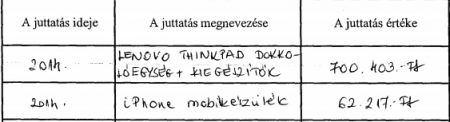 A juttatás ideje A juttatás megnevezése A juttatás értéke
2014. LENOVO THINKPAD DOKKO-
LÓEGYSÉG + KIEGÉSZÍTŐK 700.403.-Ft
2014. iPhone mobilkészülék 62.217.-Ft